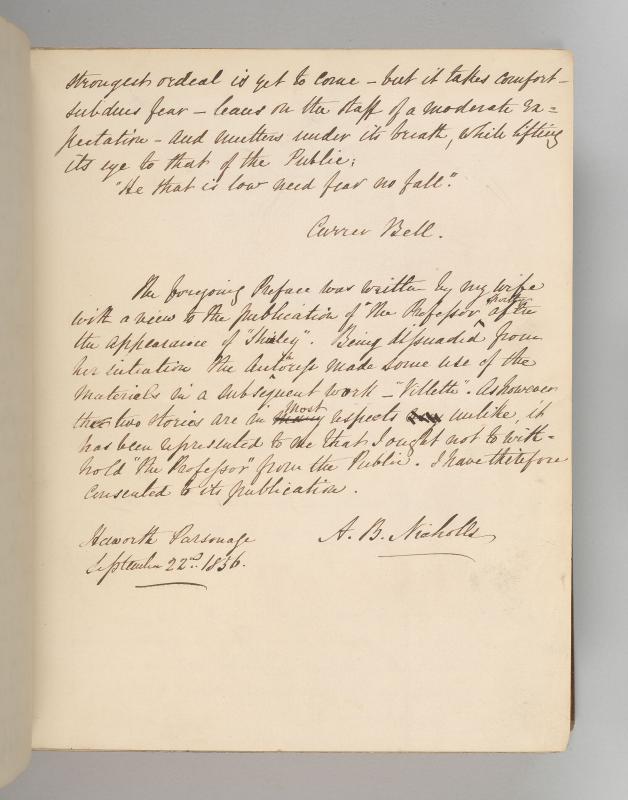 strongest ordeal is yet to come – but it takes comfort –
subdues fear – leans on the staff of a moderate ex=
pectation – and mutters under its breath, while lifting
its eye to that of the Public;
"He that is low need fear no fall".
Currer Bell.
The foregoing Preface was written by my wife
with a view to the publication of "The Professor shortly after
the appearance of "Shirley". Being dissuaded from
her intention the Authoress made some use of the
materials in a subsequent work – "Villette". As however
these two stories are in most aspects unlike, it
has been represented to me that I ought not to with-
hold "The Professor" from the Public. I have therefore
consented to its publication.
Haworth Parsonage
A. B. Nicholls
September 22nd. 1856.